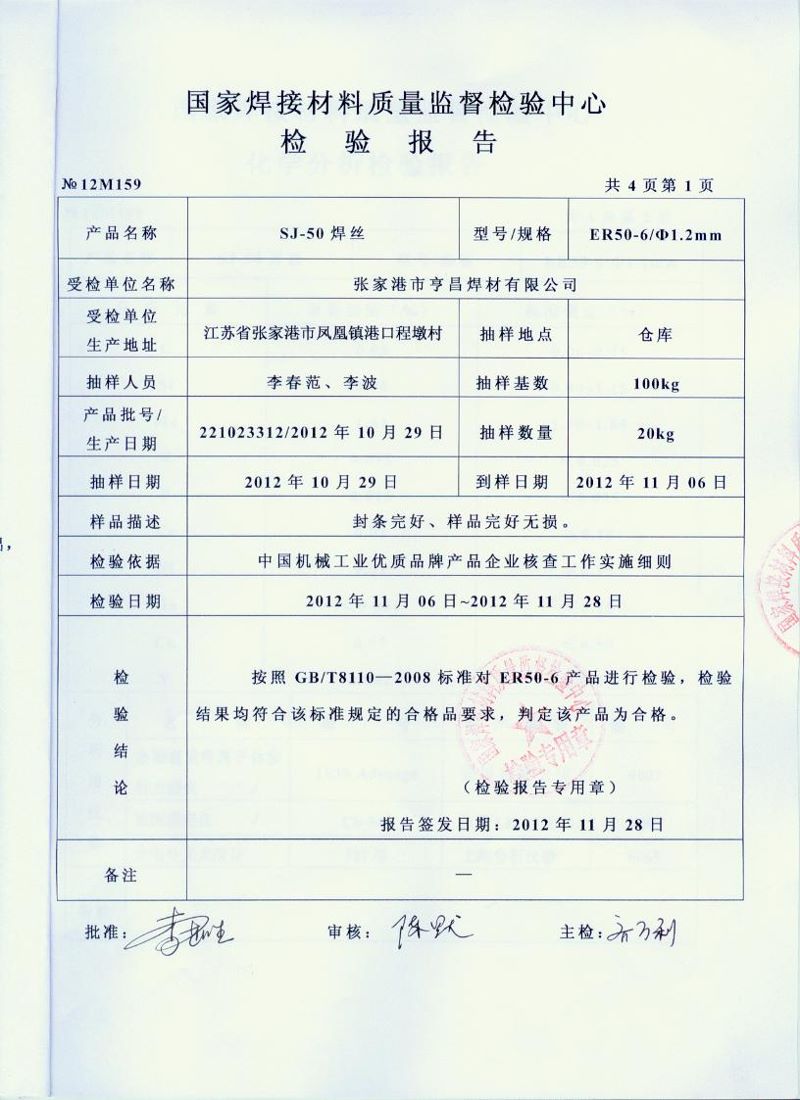 国家焊接材料质量监督检验中心
检 验 报 告
№12M159
共 4 页第 1 页
产品名称
SJ-50 焊丝
型号/规格
ER50-6/Φ1.2mm
受检单位名称
张家港市亨昌焊材有限公司
受检单位
生产地址
江苏省张家港市凤凰镇港口程墩村
抽样地点
仓库
抽样人员
李春范、李波
抽样基数
100kg
产品批号/
生产日期
221023312/2012 年 10 月 29 日
抽样数量
20kg
抽样日期
2012 年 10 月 29 日
到样日期
2012 年 11 月 06 日
样品描述
封条完好、样品完好无损。
检验依据
中国机械工业优质品牌产品企业核查工作实施细则
检验日期
2012 年 11 月 06 日~2012 年 11 月 28 日
检
验
结
论
按照 GB/T8110—2008 标准对 ER50-6 产品进行检验，检验
结果均符合该标准规定的合格品要求，判定该产品为合格。
检验专用章
（检验报告专用章）
报告签发日期：2012 年 11 月 28 日
备注
—
批准：
审核：陈默
主检：